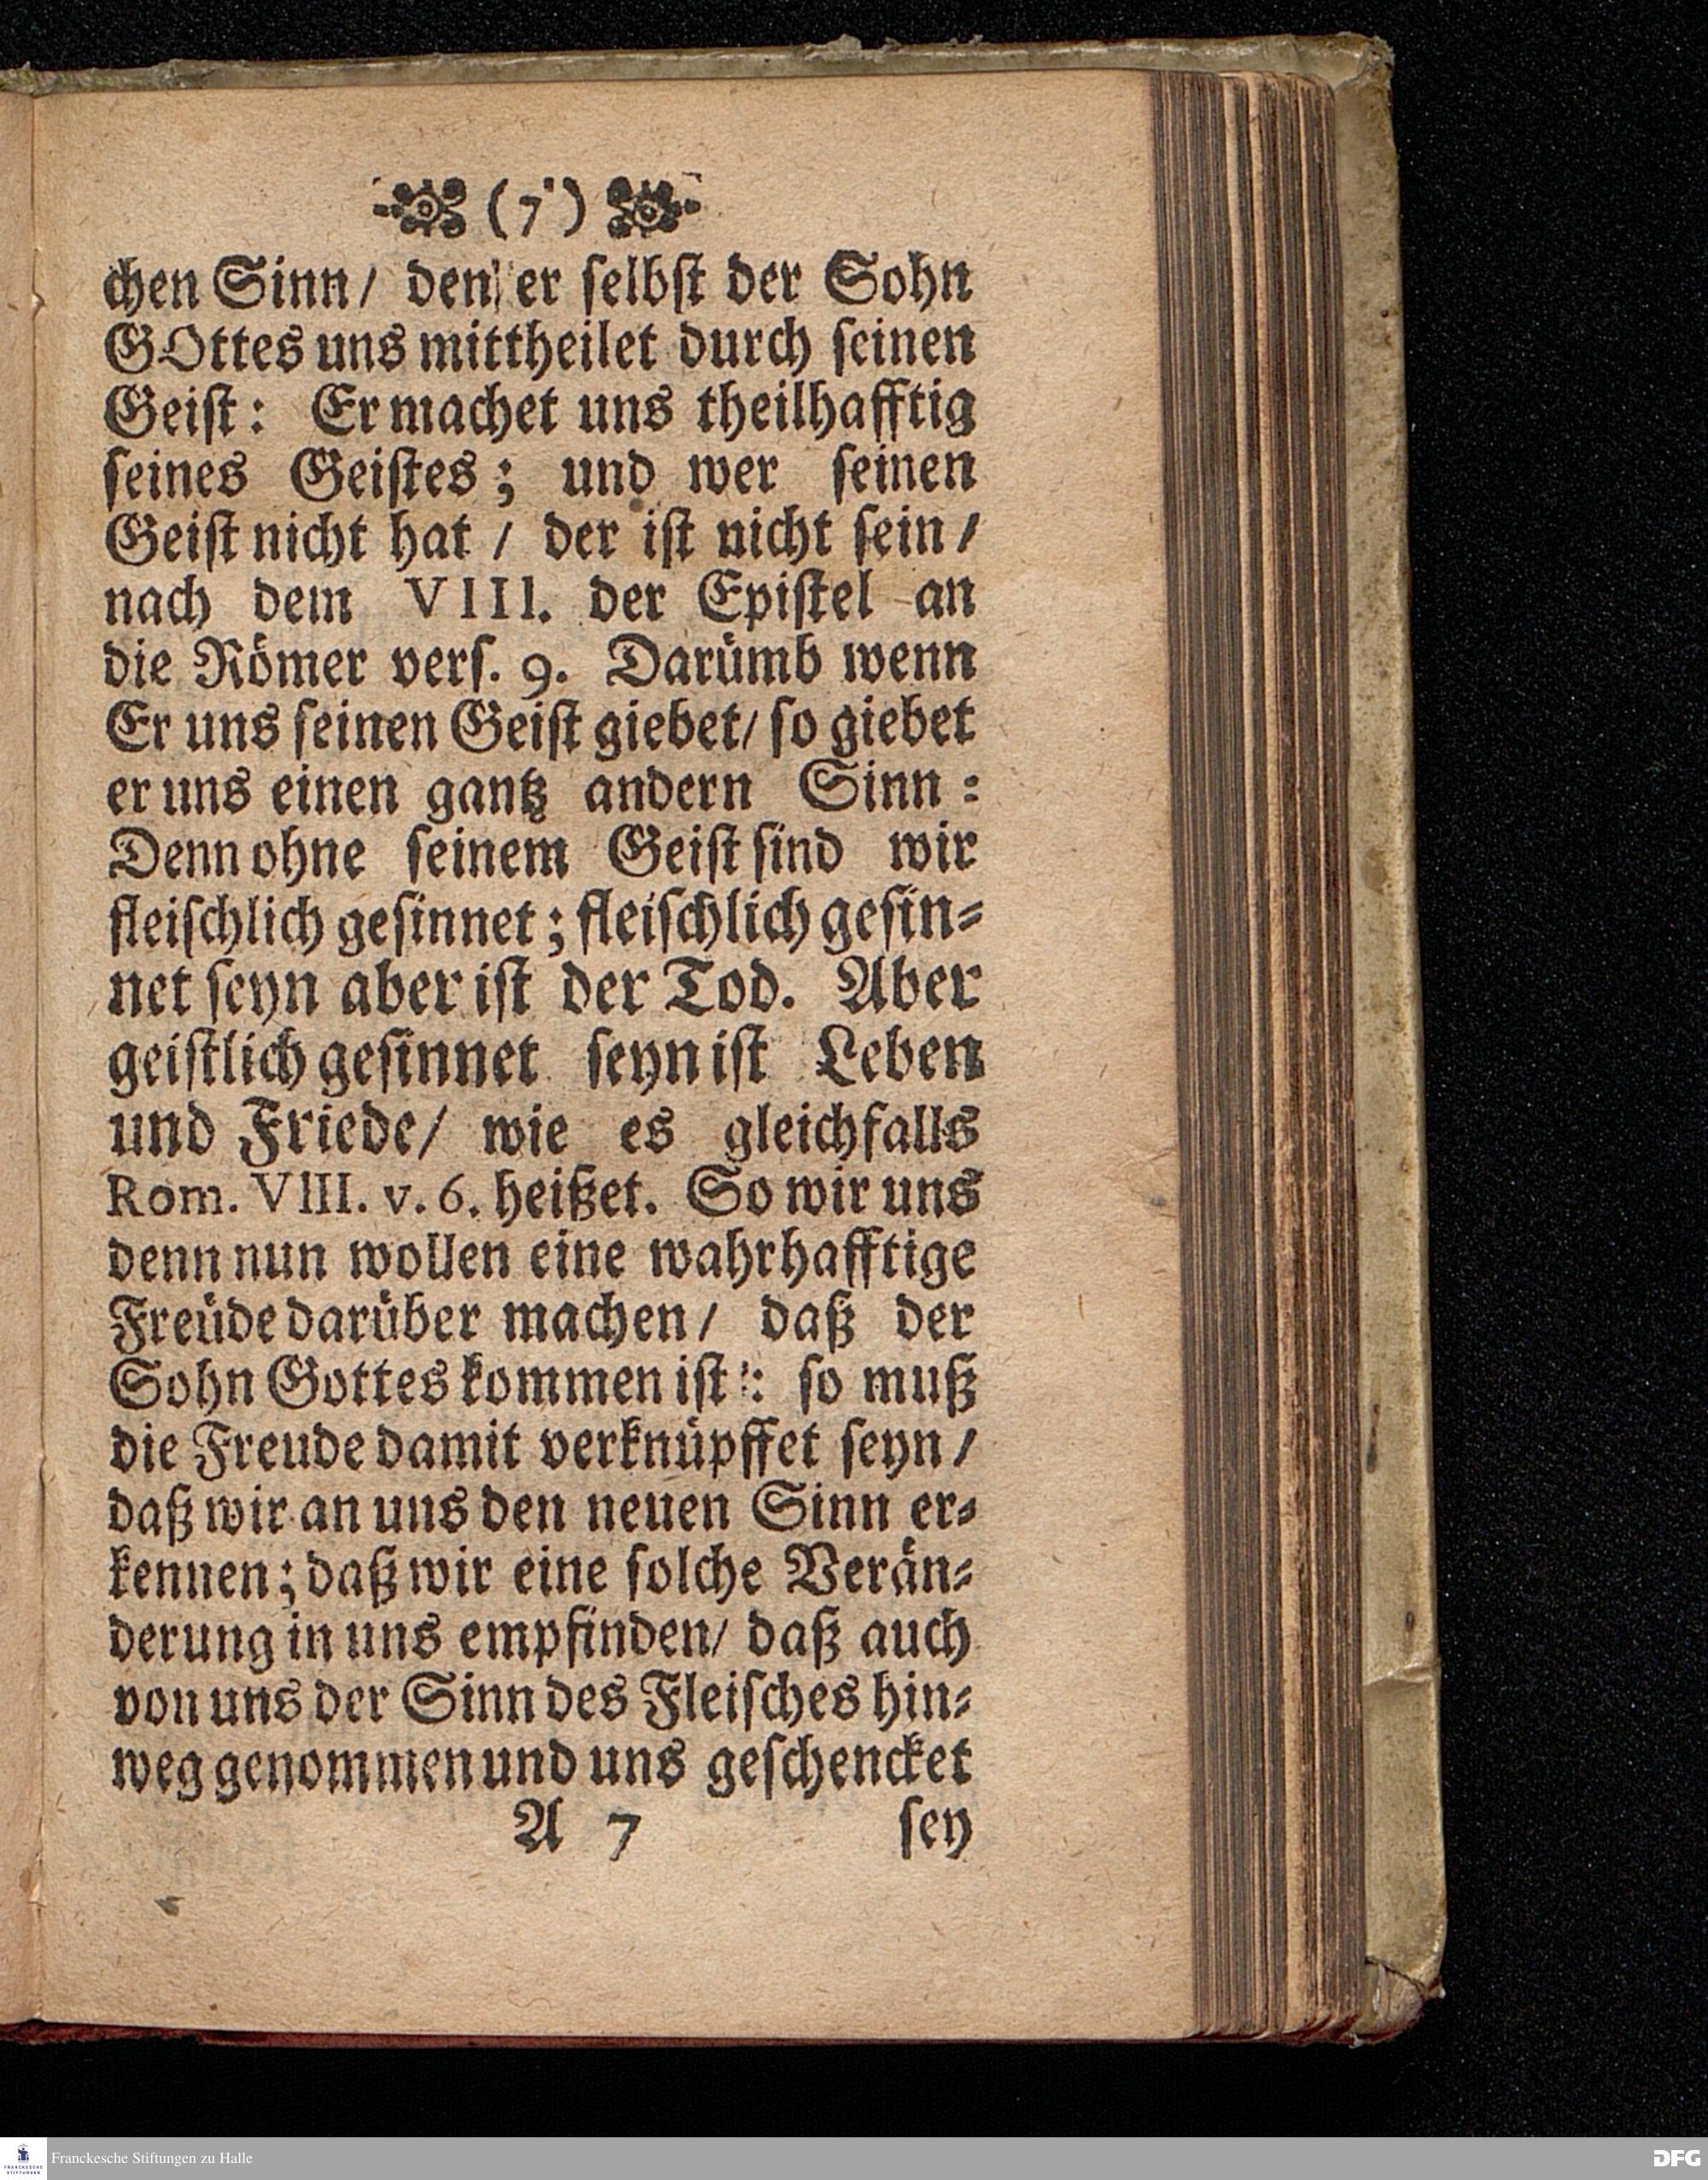 (7)
chen Sinn/ den er ſelbſt der Sohn
GOttes uns mittheilet durch ſeinen
Geiſt: Er machet uns theilhafftig
ſeines Geiſtes; und wer ſeinen
Geiſt nicht hat / der iſt nicht ſein /
nach dem VIII. der Epiſtel an
die Römer verſ. 9. Darümb wenn
Er uns ſeinen Geiſt giebet/ ſo giebet
er uns einen gantz andern Sinn:
Denn ohne ſeinem Geiſt ſind wir
fleiſchlich geſinnet; fleiſchlich geſin-
net ſeyn aber iſt der Tod. Aber
geiſtlich geſinnet ſeyn iſt Leben
und Friede/ wie es gleichfalls
Rom. VIII. v. 6. heißet. So wir uns
denn nun wollen eine wahrhafftige
Freüde darüber machen/ daß der
Sohn Gottes kommen iſt: ſo muß
die Freude damit verknüpffet ſeyn /
daß wir an uns den neuen Sinn er-
kennen; daß wir eine ſolche Verän-
derung in uns empfinden/ daß auch
von uns der Sinn des Fleiſches hin-
weg genommen und uns geſchencket
A 7 ſey
FRANCKESCHE STIFTUNGEN
Franckesche Stiftungen zu Halle
DFG